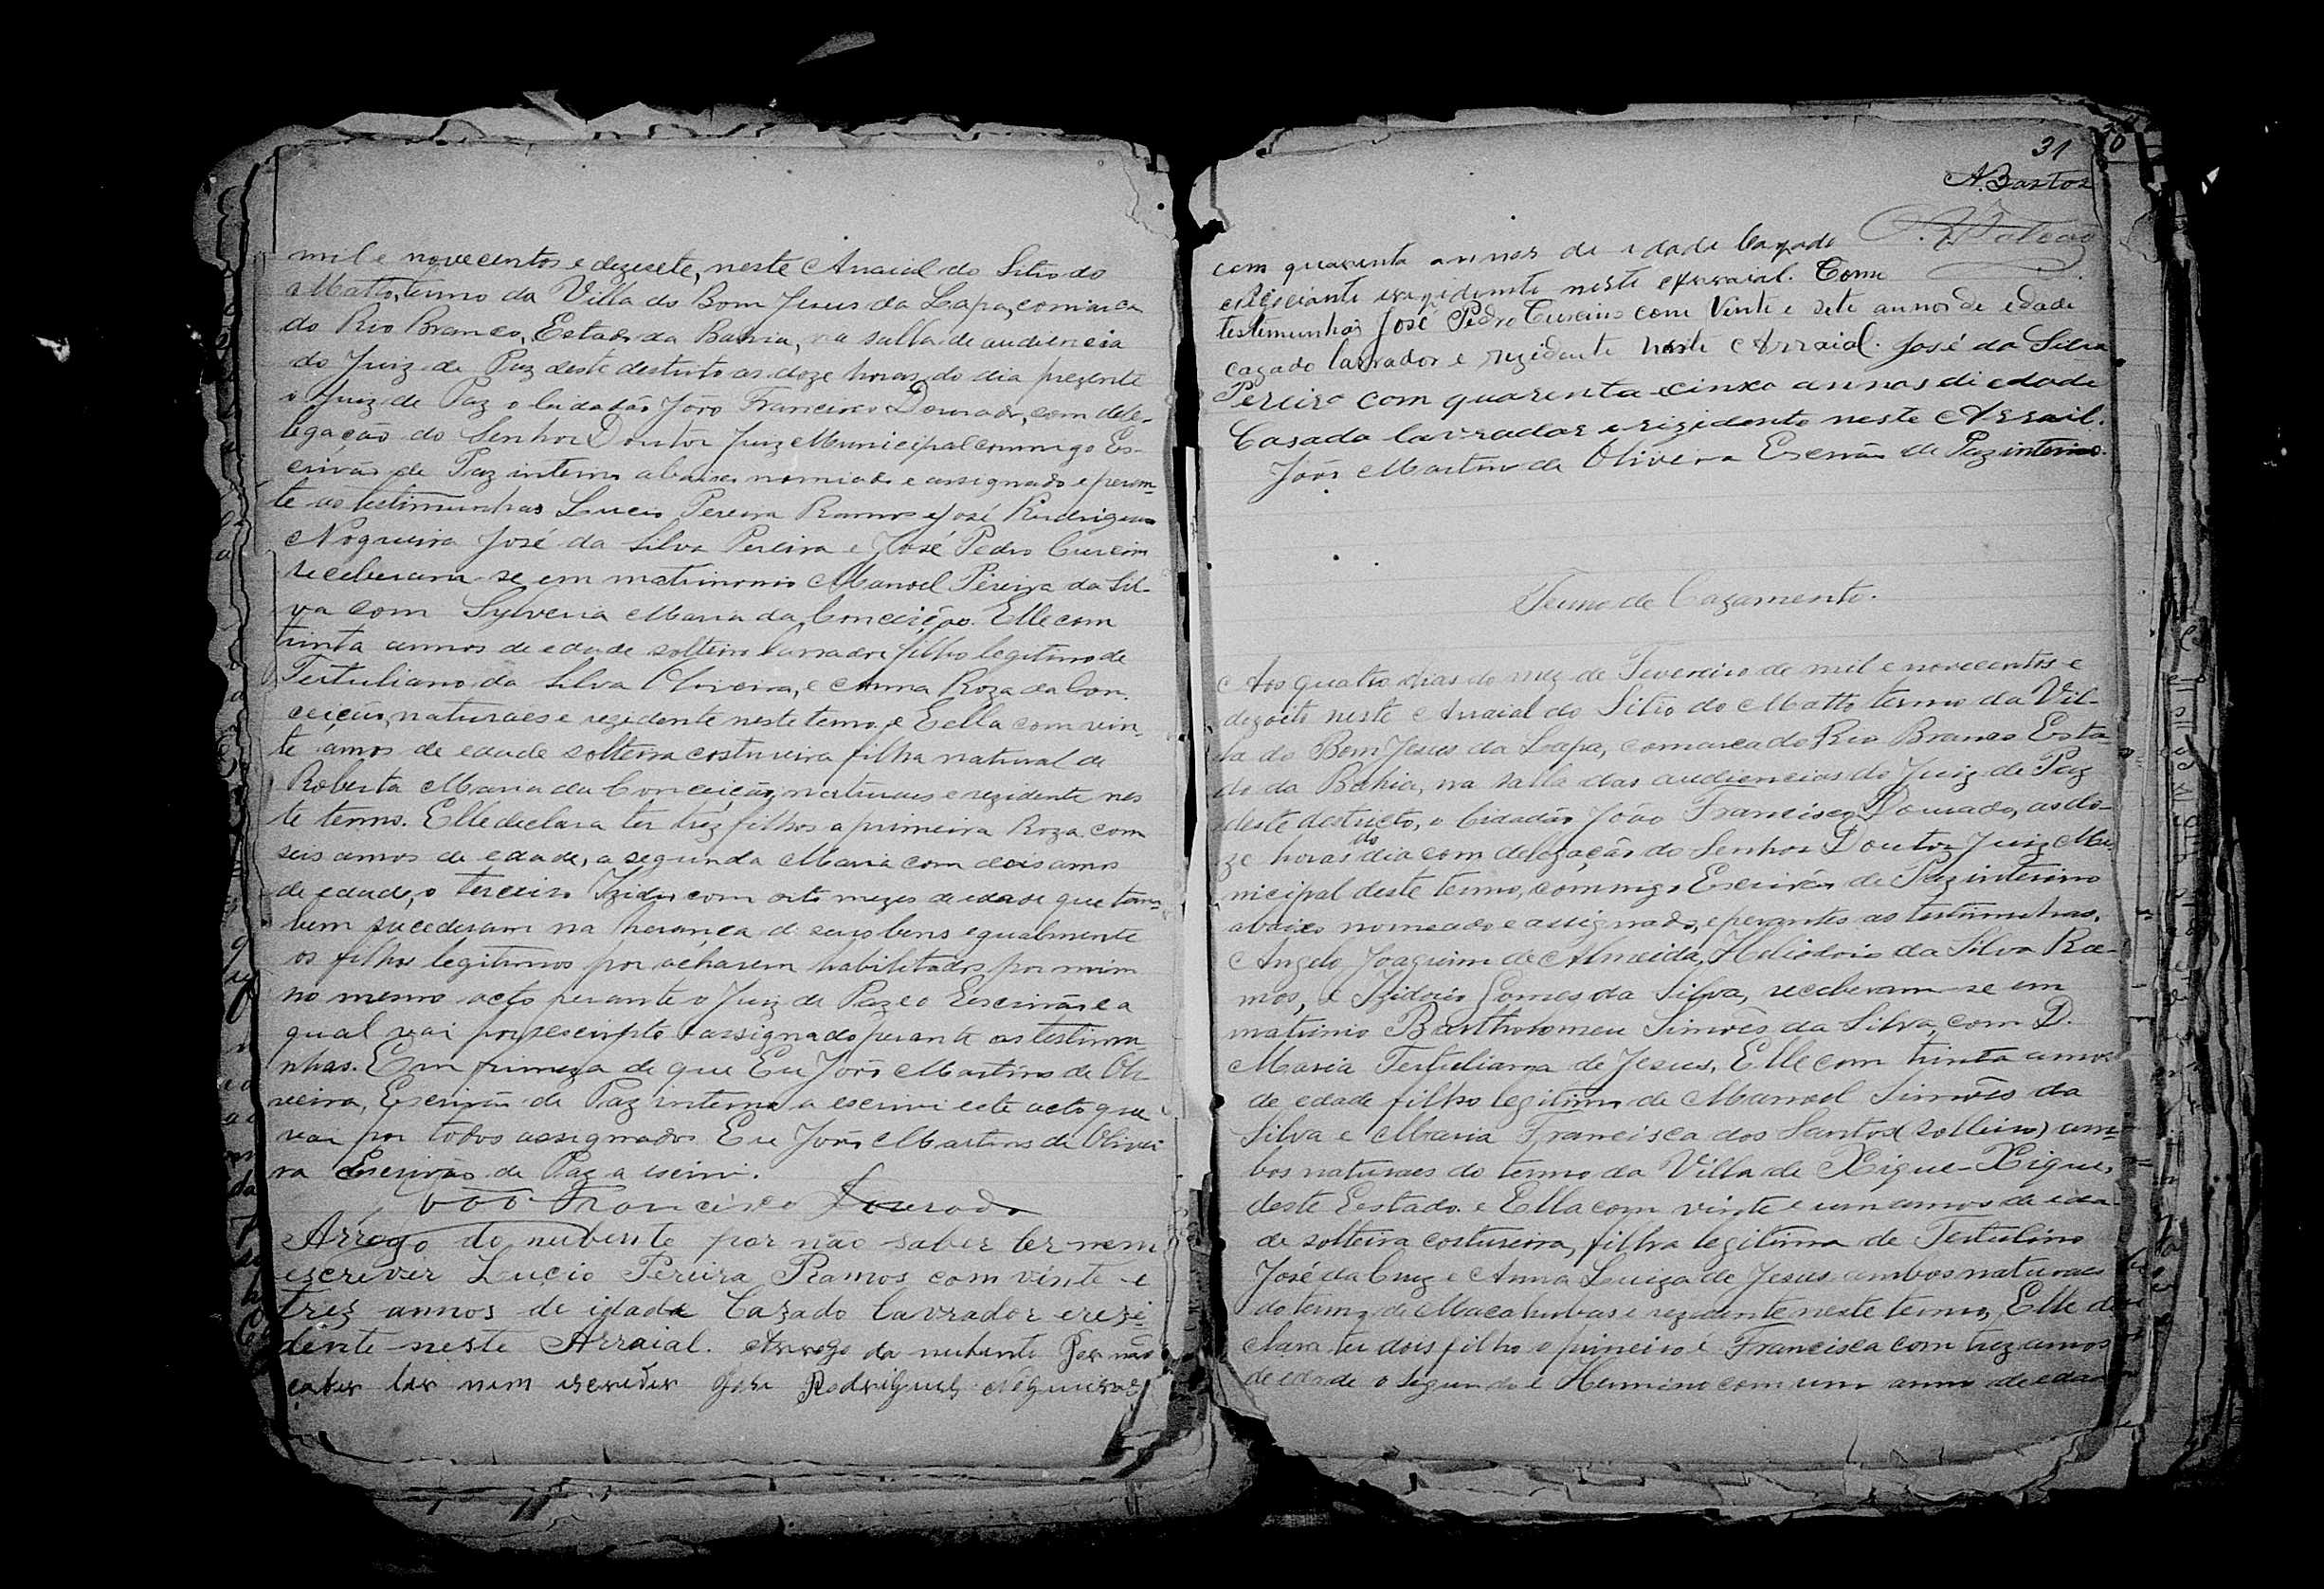 mil e novecentos e dezesete, neste Arraial do Sitio do
Matto, termo da Villa do Bom Jesus da Lapa, comarca
do Rio Branco, Estado da Bahia, na salla de audiencia
do Juiz de Paz deste destricto as doze horas do dia prezente
o Juiz de Paz o Cidadão João Francisco Dourado, com dele-
legação do Senhor Doutor Juiz Municipal commigo Es-
crivão de Paz interino abaixo nomiado e assignado e peran-
te as testimunhas Lucio Pereira Ramos e José Rodrigues
Nogueira José da Silva Pereira e José Pedro
receberam-se em matrimonio Manoel Pereira da Sil-
va com Sylveria Maria da Conceição. Elle com
trinta annos de edade solteiro lavrador filho legitimo de
Tertuliano da Silva Oliveira, e Anna Roza da Con-
ceição, naturaes e rezidente neste termo, e Eella com vin
te annos de edade solteira costureira filha natural de
Roberta Maria da Conceição, naturaes e rezidente nes
te termo. Elle declara ter trez filhos a primeira Roza com
seis annos de edade, a segunda Maria com dois annos
de edade, o terceiro Izidio com oito mezes de edade que tam-
bem sucederam na herança de seus bens egualmente
os filhos legitimos por acharem habilitados por mim
no mesmo acto perante o Juiz de Paz e o Escrivão e a
qual vai por escripto assignado perante as testimu-
nhas. Em firmeza de que Eu João Martins de Oli-
veira, Escrivão de Paz interino a escrivi este acto que
vai por todos assignados Eu João Martins de Olivei
ra Escrivão de Paz a escrivi.
João Francisco Dourado
Arrogo do nubente por não saber ler nem
escrever Lucio Pereira Ramos com vinte e
trez annos de idade Cazado lavrador e rezi-
dente neste Arraial. Arrogo da nubente Por não
saber ler nem escrever José Rodrigues Nogueira
31
A. Bastos
com quarenta annos de idade Cazado
rezidente neste Arraial. Como
testimunhas José Pedro com Vinte e sete annos de edade
cazado lavrador e rezidente neste Arraial. José da Silva
Pereira com quarenta cinco annos di edade
Casado lavrador e rizidente neste Arrail.
João Martins de Oliveira Escrivão de Paz interino.
Termo de Cazamento.
Aos quatro dias do mez de Fevereiro de mil e novecentos e
dezoito neste Arraial do Sitio do Matto termo da Vil-
la do Bom Jesus da Lapa, comarca do Rio Branco Esta-
do da Bahia, na salla das audiencias do Juiz de Paz
deste destricto, o Cidadão João Francisco Dourado, as do-
ze horas do dia com delegação do Senhor Doutor Juiz Mu-
nicipal deste termo, commigo Escrivão de Paz interino
abaixo nomeado e assignado, e perantes as testimunhas.
Angelo Joaquim de Almeida, Heliodorio da Silva Ra-
mos, e Izidorio Gomes da Silva, receberam-se em
matrimio Bartholomeu Simões da Silva, com D.
Maria Tertuliana de Jesus. Elle com trinta annos
de edade filho legitimo de Manoel Simões da
Silva e Maria Francisca dos Santos (solteiro) am-
bos naturaes do termo da Villa de Xique-Xique,
deste Eestado. e Ella com vinte e um annos de eda-
de solteira costureira, filha legitima de Tertulino
José da Cruz e Anna Luiza de Jesus ambos naturaes
do termo de Macahubas e rezidente neste termo, Elle de
clara ter dois filho o primeiro é Francisca com trez annos
de edade o segundo é Hermino com um anno de eda